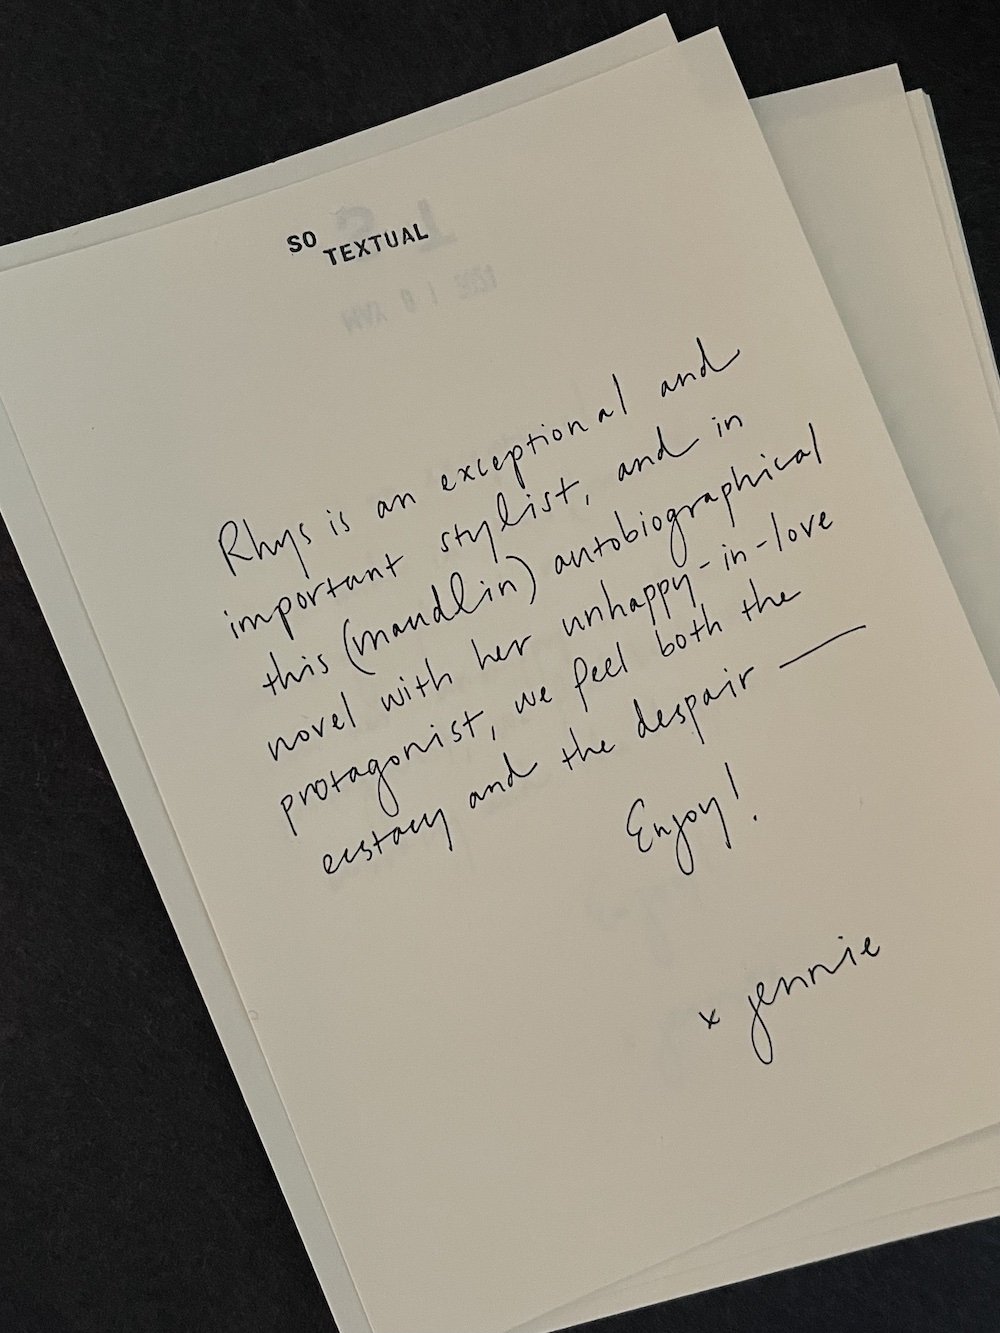 SO
TEXTUAL
Rhys is an exceptional and
important stylist, and in
this (maudlin) autobiographical
novel with her unhappy-in-love
protagonist, we feel both the
ecstacy and the despair —
Enjoy!
x jennie